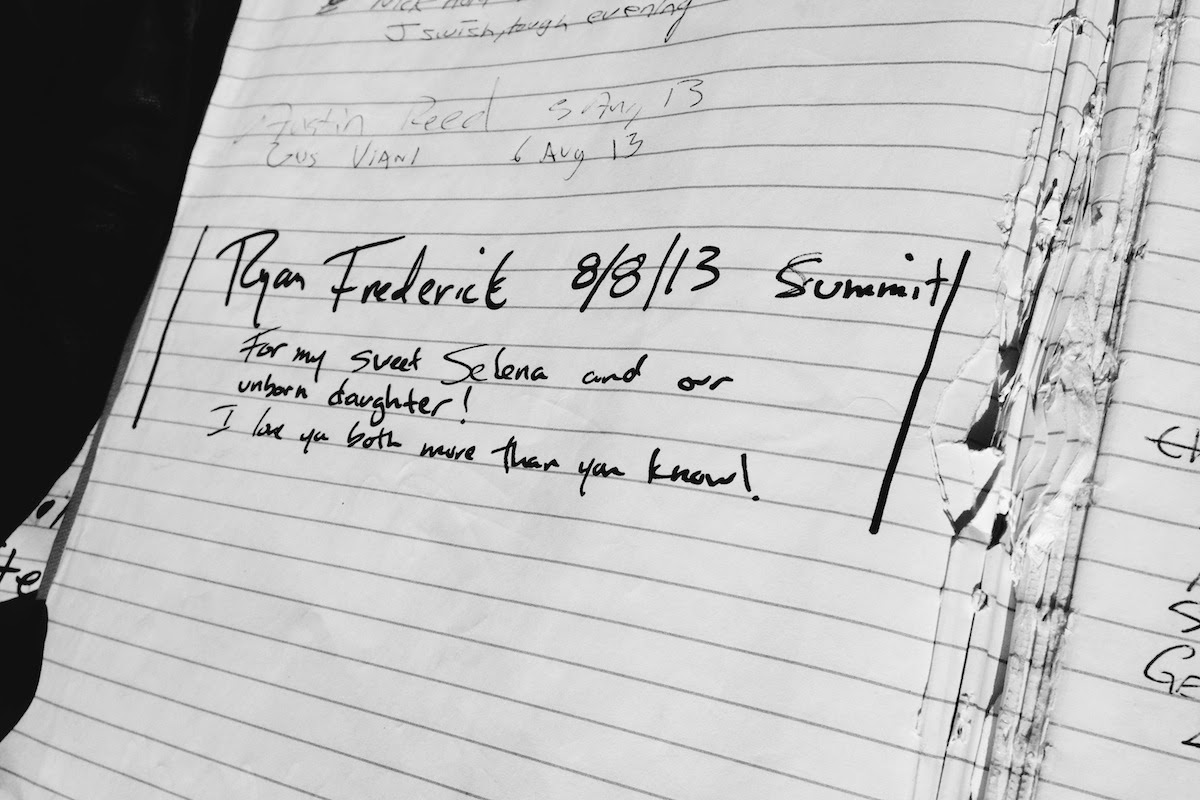 evening
Austin Reed 5 Aug 13
Gus Viani 6 Aug 13
Ryan Frederick 8/8/13 Summit
For my sweet Selena and our
unborn daughter!
I love you both more than you know!